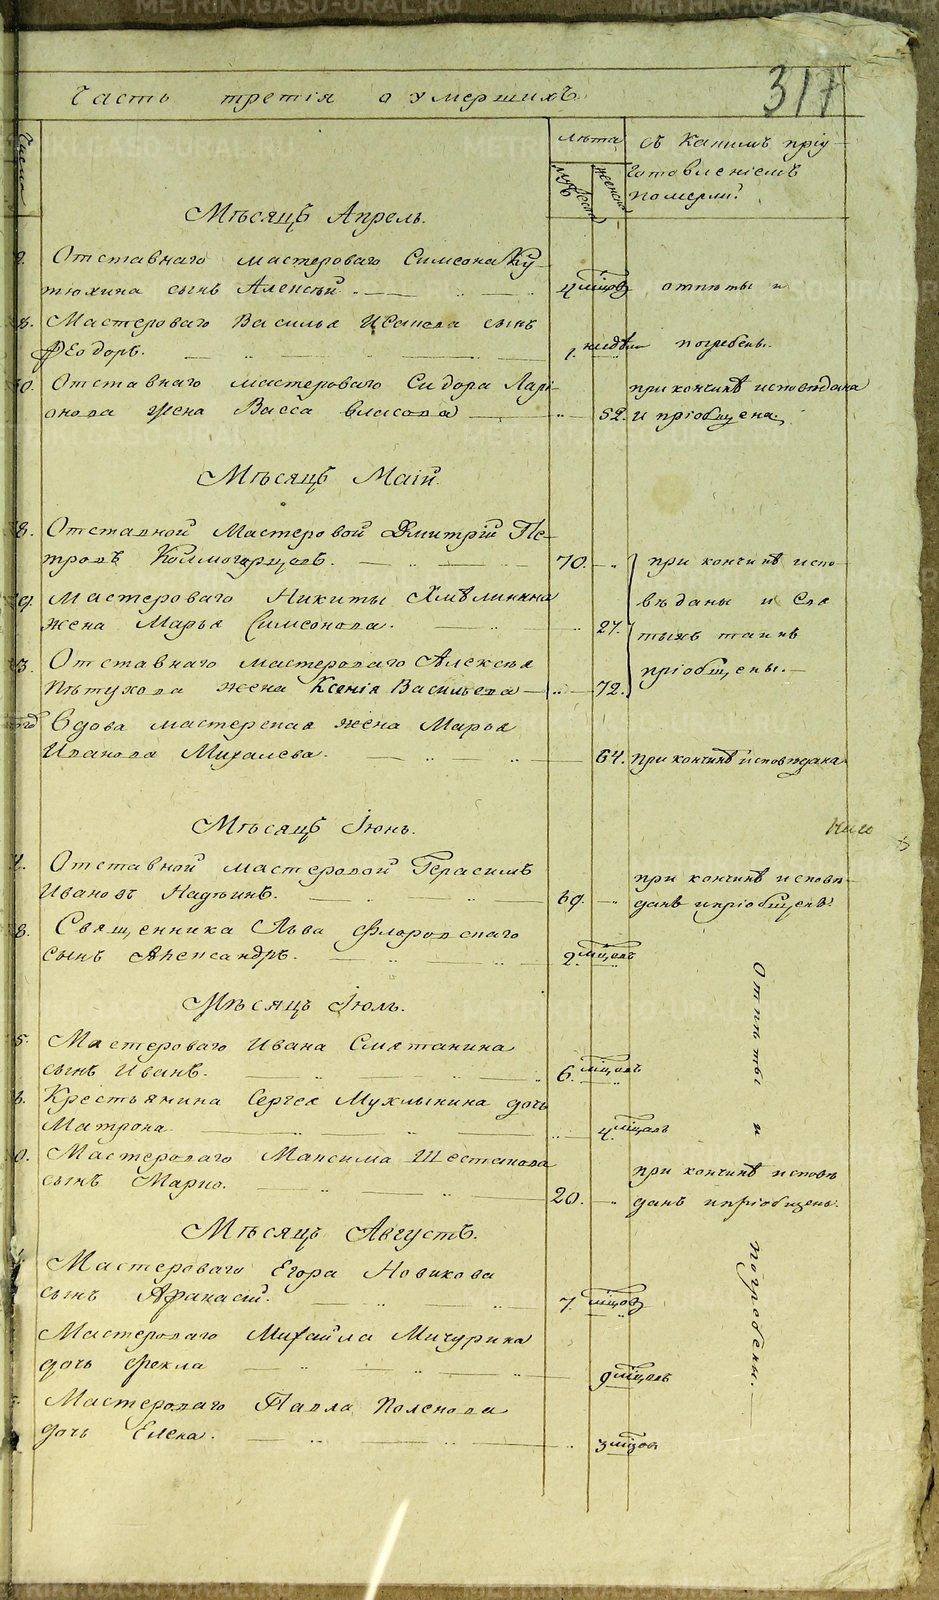 METRIKI.GASO-URAL.RU
317
Часть третія о умершихъ
Числа
лѣта
мужеск
женска
съ Какимъ пріу-
готовленіемъ
померли?
Мѣсяцъ Апрель.
Отставнаго мастероваго Симеона Ку-
тюхина сынъ Алексѣй. 4 мѣцовъ отпѣты и
8. Мастероваго Василья Исакова сынъ
Феодоръ. 1. недѣли погребены.
0. Отставнаго мастероваго Сидора Лари-
онова жена Васса Власова 52. при кончинѣ исповѣдана
и пріобщена.
Мѣсяцъ Маій.
8. Отставной Мастеровой Дмитрій Пе-
тровъ Колмогорцовъ. 70. при кончинѣ испо-
9. Мастероваго Никиты Хмѣлинина вѣданы и Свя
жена Марья Симеонова. 27. тыхъ таинъ
3. Отставнаго мастероваго Алексѣя пріобщены.
Пѣтухова жена Ксенія Васильева 72.
Вдова мастерская жена Марья
Иванова Михалева. 64. при кончинѣ исповѣдана
Мѣсяцъ Іюнь.
Отставной мастеровой Герасимъ при кончинѣ исповѣ-
Ивановъ Надѣинъ. 69. данъ и пріобщенъ.
8. Священника Льва Флоровскаго
сынъ Александръ. 2. мѣцовъ
Отпѣты и погребены.
Мѣсяцъ Іюль.
5. Мастероваго Ивана Сметанина
сынъ Иванъ. 6. мѣцовъ
Крестьянина Сергея Мухлынина дочь
Матрона 4. мѣцовъ
0. Мастероваго Максима Шестакова при кончинѣ исповѣ
сынъ Марко. 20. данъ и пріобщенъ.
Мѣсяцъ Августъ.
Мастероваго Егора Новикова
сынъ Афанасій. 7. мѣцовъ
Мастероваго Михайла Мичурина
дочь Фекла 9 мѣцовъ
Мастероваго Павла Поленова
дочь Елена. 3 мѣцов